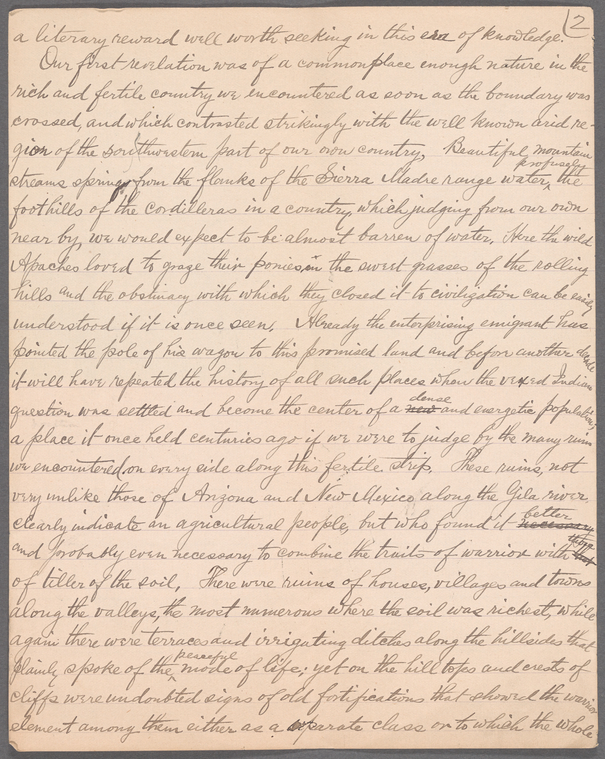 2
a literary reward well worth seeking in this era of knowledge.
Our first revelation was of a commonplace enough nature in the
rich and fertile country we encountered as soon as the boundary was
crossed, and which contrasted strikingly with the well known arid re-
gion of the southwestern part of our own country. Beautiful mountain
streams springing from the flanks of the Sierra Madre range water profusely the
foothills of the cordilleras in a country which, judging from our own
near by, we would expect to be almost barren of water. Here the wild
Apaches loved to graze their ponies in the sweet grasses of the rolling
hills and the obstinacy with which they closed it to civilization can be easily
understood if it is once seen. Already the enterprising emigrant has
pointed the pole of his wagon to this promised land and before another decade
it will have repeated the history of all such places when the vexed Indian
question was settled and become the center of a new dense and energetic population,
a place it once held centuries ago if we were to judge by the many ruins
we encountered on every side along this fertile strip. These ruins, not
very unlike those of Arizona and New Mexico along the Gila river
clearly indicate an agricultural people, but who found it necessary better
and probably even necessary to combine the traits of warrior with that those
of tiller of the soil. There were ruins of houses, villages and towns
along the valleys, the most numerous where the soil was richest, while
again there were terraces and irrigating ditches along the hillsides that
plainly spoke of the peaceful mode of life; yet on the hill topes and crests of
cliffs were undoubted signs of old fortifications that showed the warrior
element among them either as a separate class or to which the whole